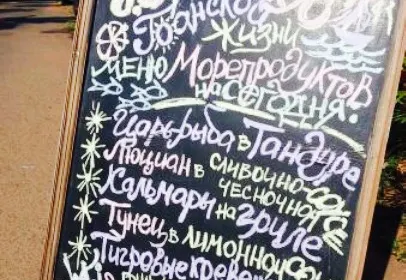 Жизни
Меню Морепродуктов
на сегодня.
Царь-рыба в Тандуре
Люциан в сливочно-
чесночном соусе
Кальмары на гриле
Тунец в лимонном
Тигровые креве